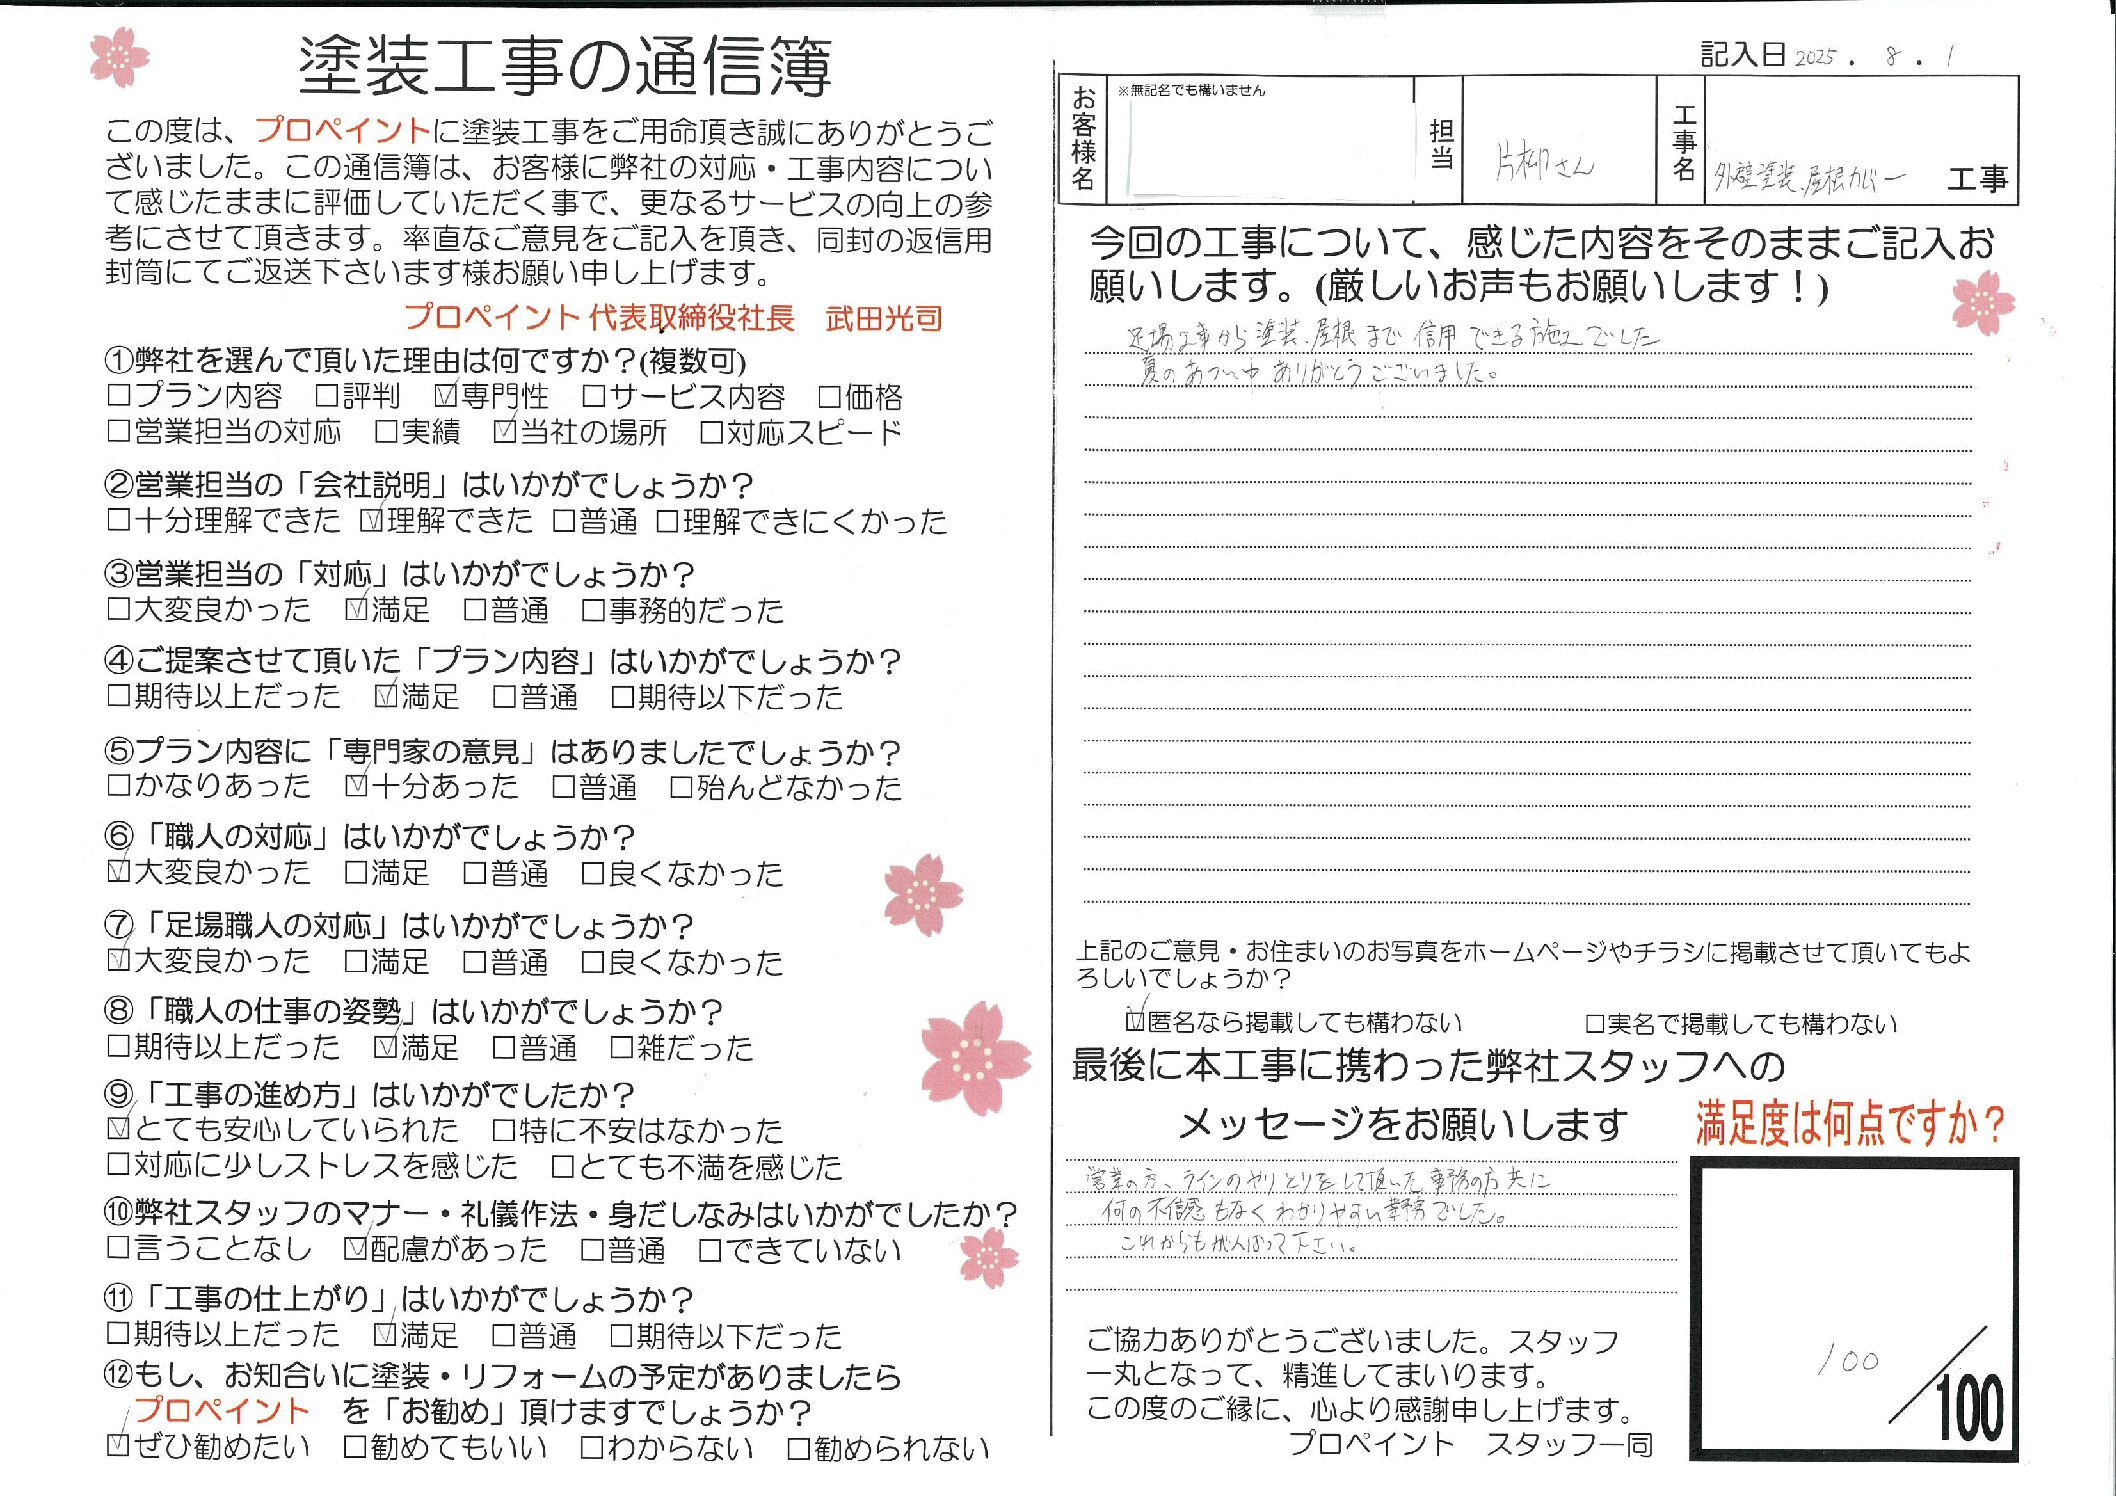 塗装工事の通信簿
この度は、プロペイントに塗装工事をご用命頂き誠にありがとうご
ざいました。この通信簿は、お客様に弊社の対応・工事内容につい
て感じたままに評価していただく事で、更なるサービスの向上の参
考にさせて頂きます。率直なご意見をご記入を頂き、同封の返信用
封筒にてご返送下さいます様お願い申し上げます。
プロペイント代表取締役社長 武田光司
①弊社を選んで頂いた理由は何ですか？(複数可)
□プラン内容 □評判 ☑専門性 □サービス内容 □価格
□営業担当の対応 □実績 ☑当社の場所 □対応スピード
②営業担当の「会社説明」はいかがでしょうか？
□十分理解できた ☑理解できた □普通 □理解できにくかった
③営業担当の「対応」はいかがでしょうか？
□大変良かった ☑満足 □普通 □事務的だった
④ご提案させて頂いた「プラン内容」はいかがでしょうか？
□期待以上だった ☑満足 □普通 □期待以下だった
⑤プラン内容に「専門家の意見」はありましたでしょうか？
□かなりあった ☑十分あった □普通 □殆んどなかった
⑥「職人の対応」はいかがでしょうか？
☑大変良かった □満足 □普通 □良くなかった
⑦「足場職人の対応」はいかがでしょうか？
☑大変良かった □満足 □普通 □良くなかった
⑧「職人の仕事の姿勢」はいかがでしょうか？
□期待以上だった ☑満足 □普通 □雑だった
⑨「工事の進め方」はいかがでしたか？
☑とても安心していられた □特に不安はなかった
□対応に少しストレスを感じた □とても不満を感じた
⑩弊社スタッフのマナー・礼儀作法・身だしなみはいかがでしたか？
□言うことなし ☑配慮があった □普通 □できていない
⑪「工事の仕上がり」はいかがでしょうか？
□期待以上だった ☑満足 □普通 □期待以下だった
⑫もし、お知合いに塗装・リフォームの予定がありましたら
プロペイント を「お勧め」頂けますでしょうか？
☑ぜひ勧めたい □勧めてもいい □わからない □勧められない
記入日 2025 . 8 . 1
お客様名 ※無記名でも構いません 担当 片柳さん 工事名 外壁塗装、屋根カバー 工事
今回の工事について、感じた内容をそのままご記入お
願いします。(厳しいお声もお願いします！)
足場工事から塗装、屋根まで信用できる施工でした
夏のあつい中ありがとうございました。
上記のご意見・お住まいのお写真をホームページやチラシに掲載させて頂いてもよ
ろしいでしょうか？
☑匿名なら掲載しても構わない □実名で掲載しても構わない
最後に本工事に携わった弊社スタッフへの
メッセージをお願いします
満足度は何点ですか？
営業の方、ラインのやりとりをして頂いた事務の方共に
何の不信感もなくわかりやすい業務でした。
これからもがんばって下さい。
100/100
ご協力ありがとうございました。スタッフ
一丸となって、精進してまいります。
この度のご縁に、心より感謝申し上げます。
プロペイント スタッフ一同